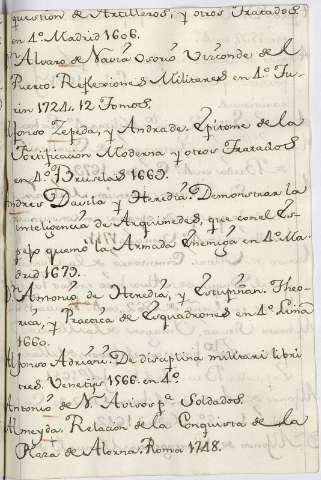 question de Artilleros, y otros Tratados
en 4º. Madrid 1606.
Dn. Alvaro de Navia Osorio Vizconde del
Puerto. Reflexiones Militares en 4º. Tu-
rin 1724. 12 Tomos.
Alfonso Zepeda, y Andrade. Epitome de la
Fortificacion Moderna y otros Tratados
en 4º. Bruselas 1669.
Andres Davila y Heredia. Demonstrar la
inteligencia de Arquimedes, que con el Es-
pejo quemó la Armada Enemiga en 4º. Ma-
drid 1673.
Dn. Antonio de Heredia, y Estupiñan. Theo-
rica, y Practica de Esquadrones en 4º. Lima
1660.
Alfonso Adriani. De disciplina militari libri
tres. Venetijs 1566. en 4º.
Antonio de N. Avisos pª. Soldados.
Almeyda. Relacion de la Conquista de la
Plaza de Alorna. Roma 1748.